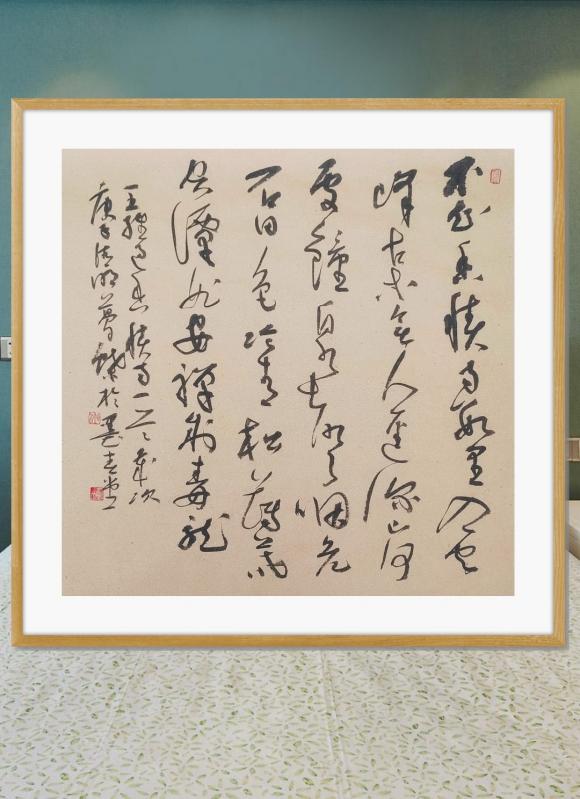 不知香積寺數里入雲
峰古木無人徑深山何
處鐘泉聲咽危
石日色冷青松薄暮
空潭曲安禪制毒龍
王維過香積寺一首歲次
庚子清明夢於墨堂